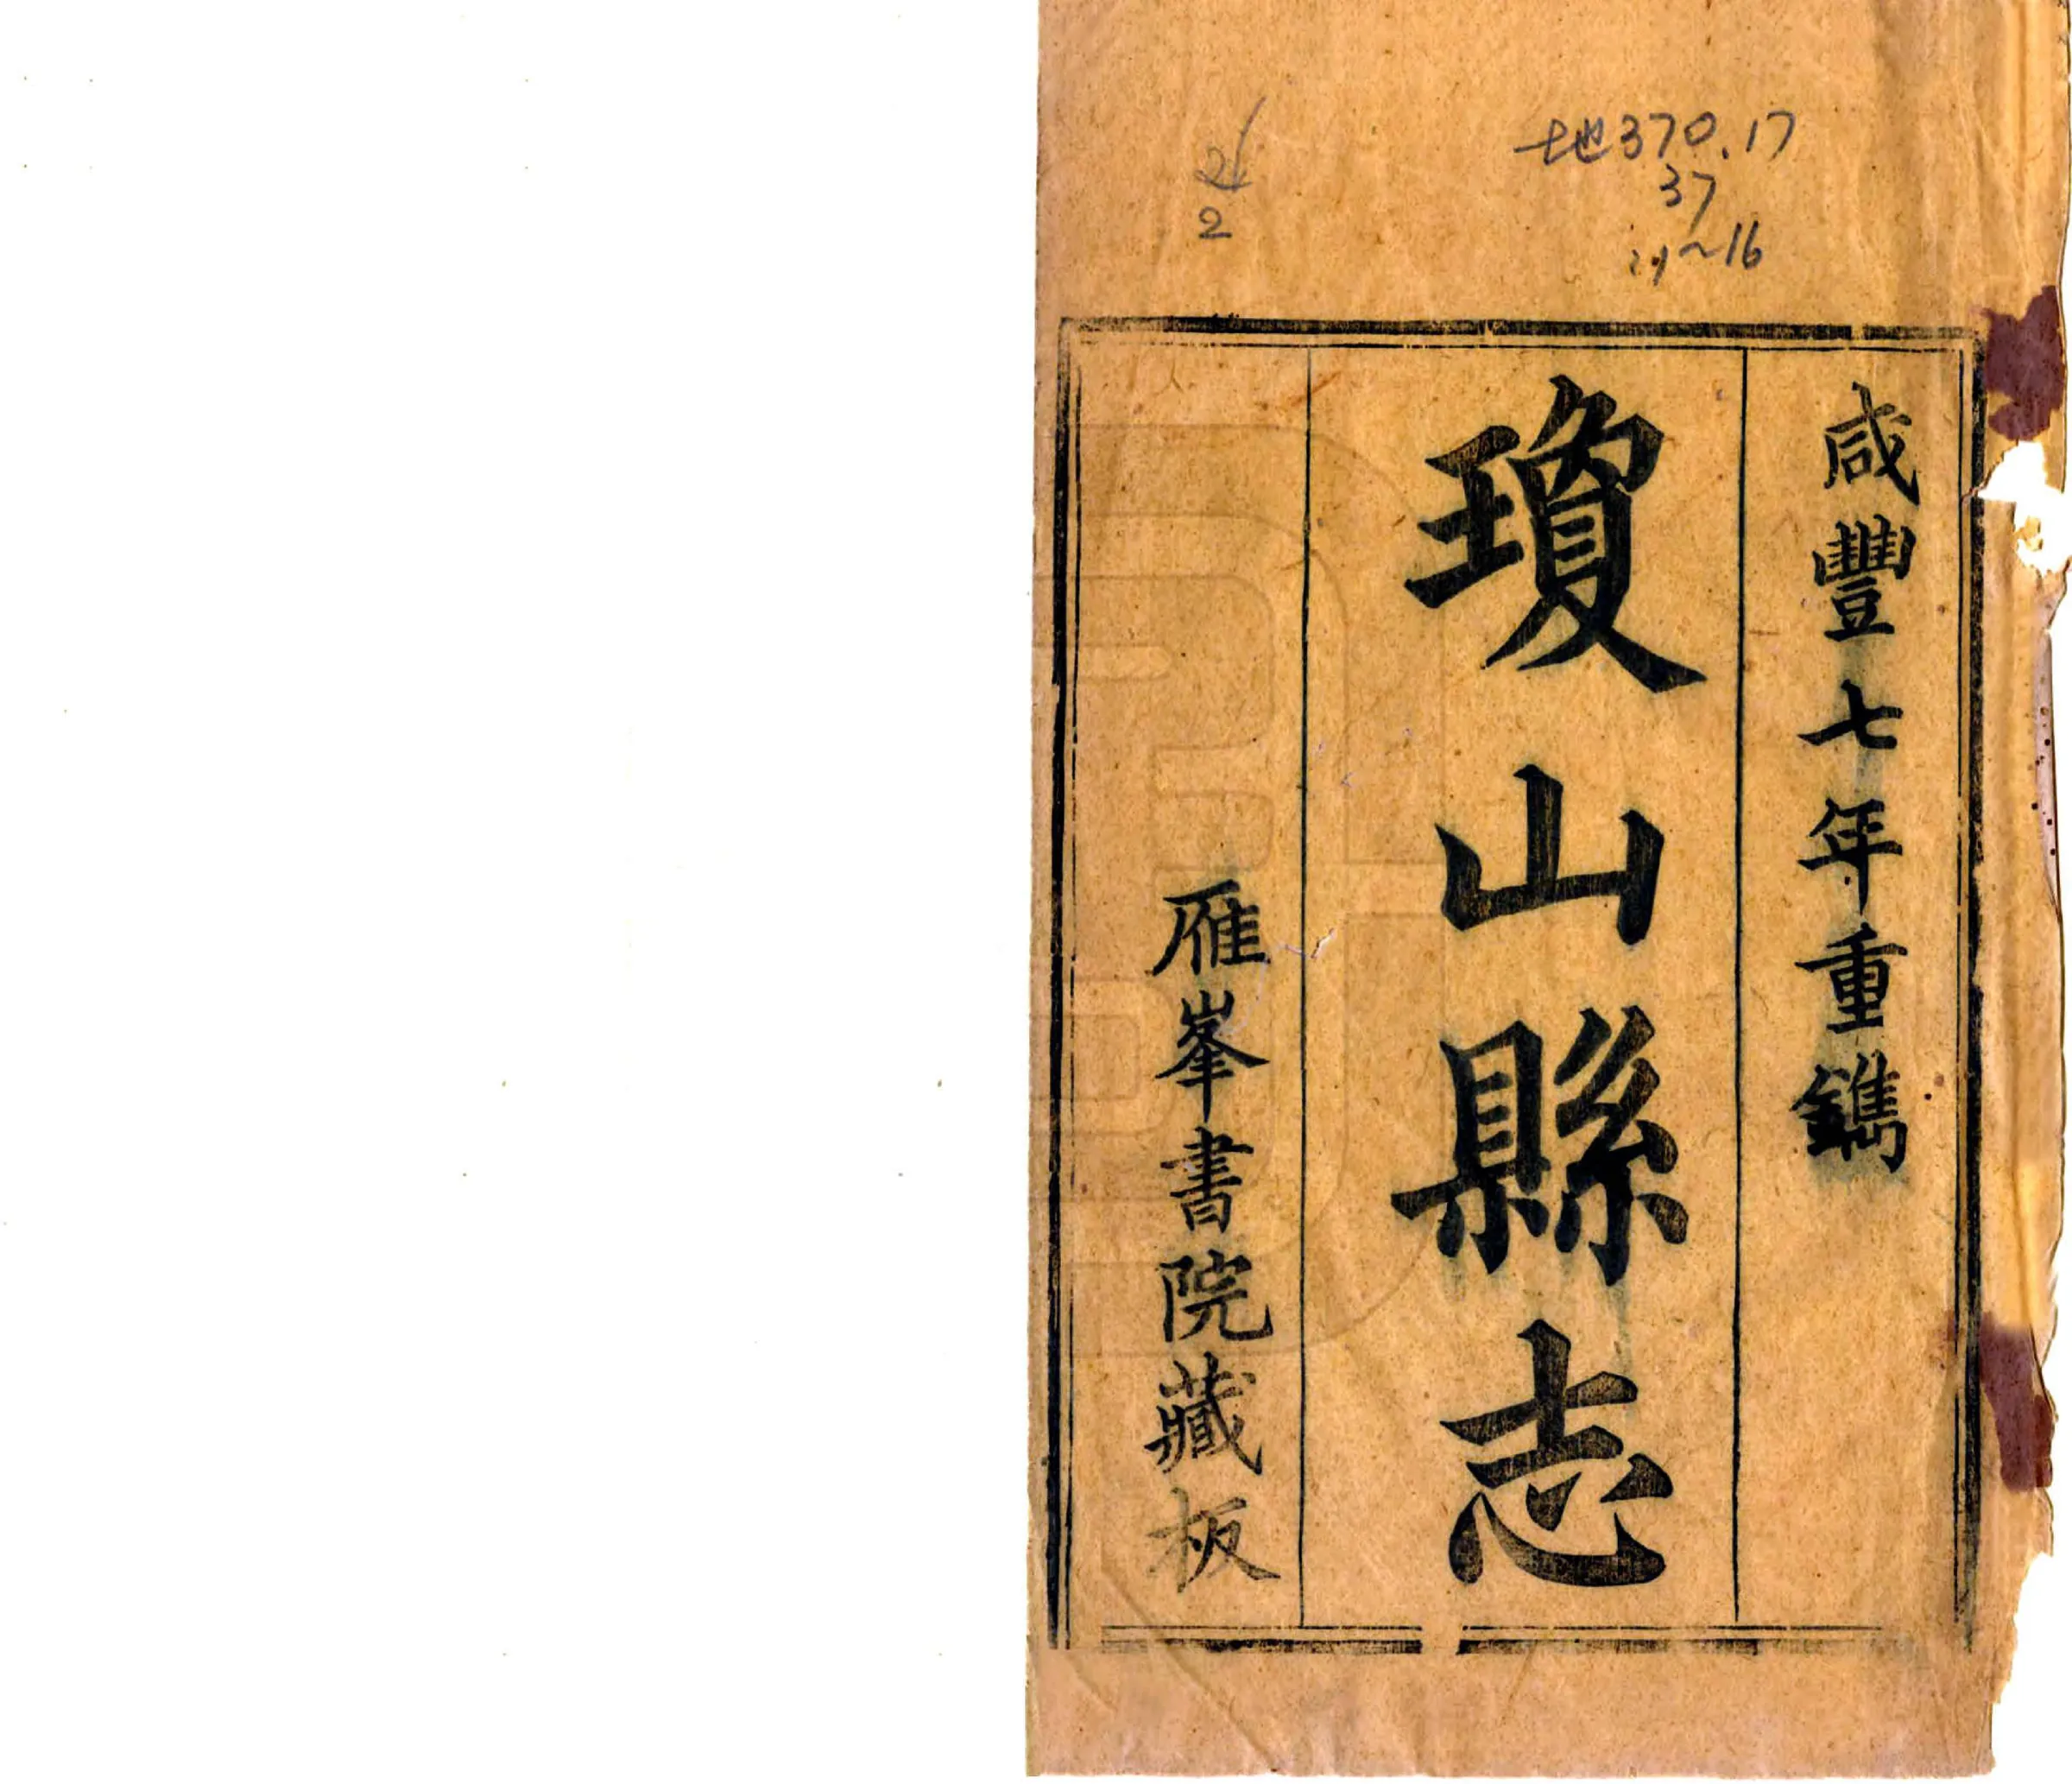 地370.17
37
2
咸豐七年重鐫
瓊山縣志
雁峯書院藏板